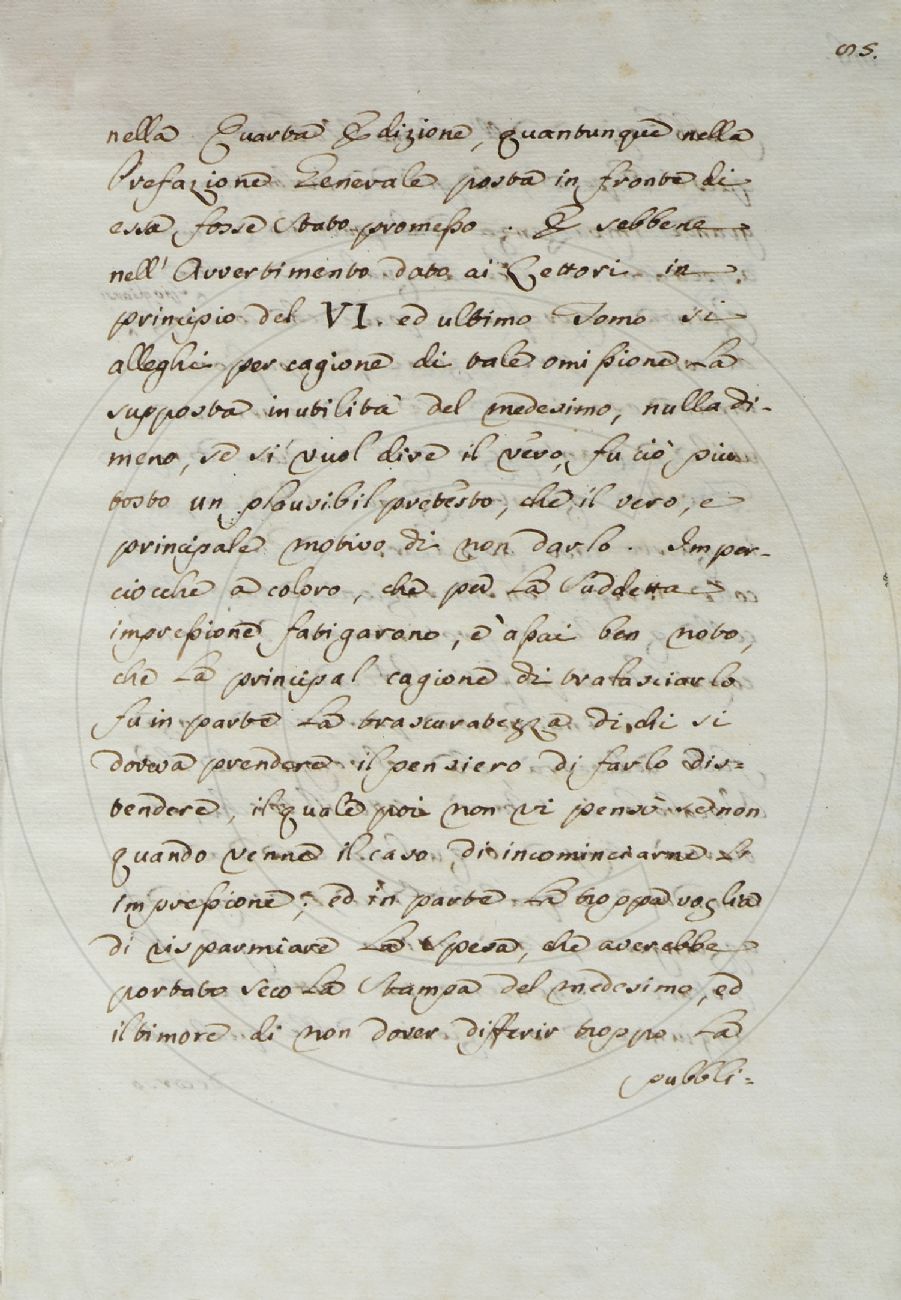 85.
nella Quarta Edizione, quantunque nella
Prefazione Generale posta in fronte di
essa fosse stato promesso. E sebbene
nell' Avvertimento dato ai Lettori in
principio del VI. ed ultimo Tomo si
alleghi per cagione di tale omissione la
supposta inutilità del medesimo, nulladi-
meno, se si vuol dire il vero, fu ciò piu
tosto un plausibil pretesto, che il vero, e
principale motivo di non darlo. Imper-
ciocchè a coloro, che per la suddetta
impressione fatigarono, è assai ben noto,
che la principal cagione di tralasciarlo
fu in parte la trascuratezza di chi si
doveva prendere il pensiero di farlo dis-
tendere, il quale poi non vi pensò se non
quando venne il caso di incominciarne la
impressione; ed in parte la troppa voglia
di risparmiare la spesa, che averebbe
portato seco la stampa del medesimo, ed
il timore di non dover differir troppo la
pubbli-